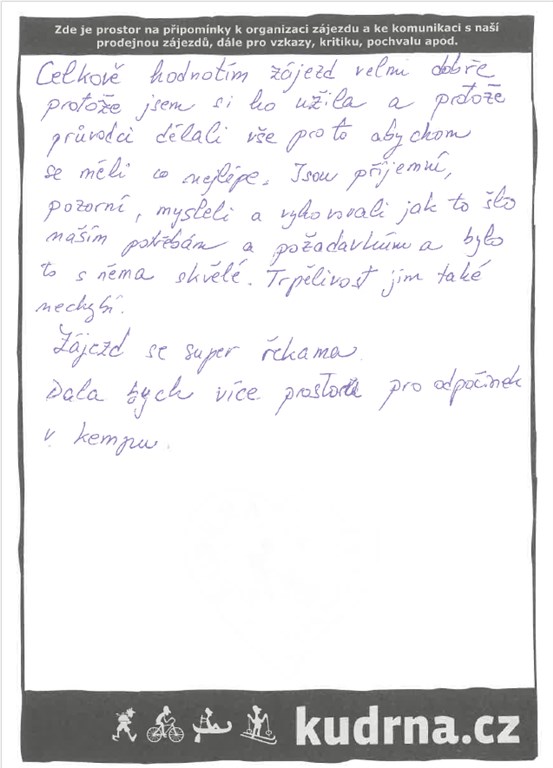 Zde je prostor na připomínky k organizaci zájezdu a ke komunikaci s naší
prodejnou zájezdů, dále pro vzkazy, kritiku, pochvalu apod.
Celkově hodnotím zájezd velmi dobře
protože jsem si ho užila a protože
průvodci dělali vše pro to abychom
se měli co nejlépe. Jsou příjemní,
pozorní, mysleli a vyhovovali jak to šlo
naším potřebám a požadavkům a bylo
to s něma skvělé. Trpělivost jim také
nechybí.
Zájezd se super řekama.
Dala bych více prostoru pro odpočinek
v kempu.
kudrna.cz